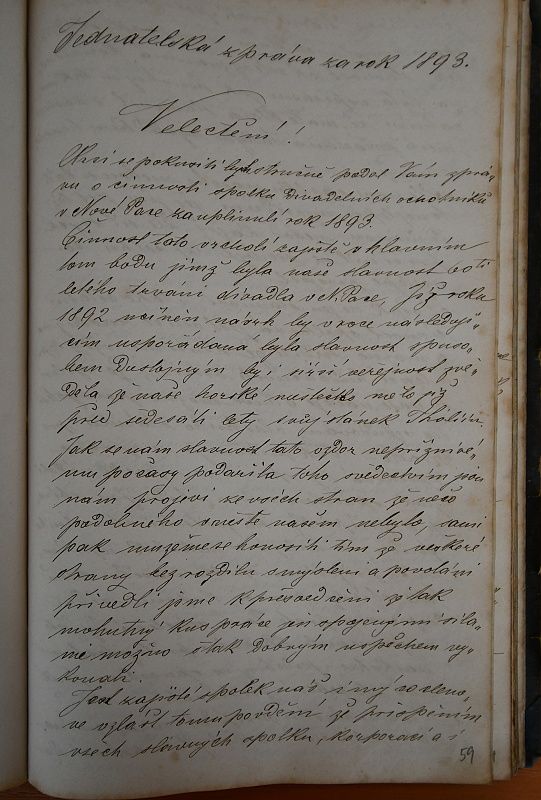 Jednatelská zpráva za rok 1893.
Velectění!
by stručně podal Vám zprá-
vu o činnosti spolku divadelních ochotníků
v Nové Pace za uplinulí rok 1893.
Činnost tato vrcholí zajistě v hlavním
tom bodu jímž byla naše slavnost 60ti
letého trvání divadla v N. Pace. Již roku
1892 učiněn návrh by v roce následují-
cím uspořádaná byla slavnost způso-
bem Důstojným by i širší veřejnost zvě-
děla že naše horské městečko mělo již
před šedesáti lety svůj stánek Thaliin.
Jak se nám slavnost tato vzdor nepříznivé-
mu počasy podařila toho svědectvím jsou
nám projevi ze všech stran že něco
podobného v městě našem nebylo, sami
pak můžeme se honositi tím že veškeré
strany bez rozdílu smýšlení a povolání
přivedli jsme k přesvědčení že tak
mohutný kus práce jen spojenými sila-
mi možno s tak Dobrým úspěchem vy-
konati.
Jest zajistí spolek náš
ve zvlášť tomu povděční že přispěním
všech slavných spolků, korporací a i
59